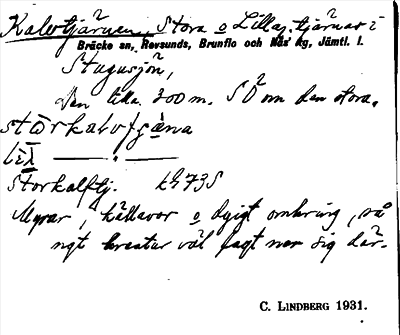 Kalvtjärnen, Stora o Lilla, tjärnar i
Bräcke sn, Revsunds, Brunflo och Näs' tg, Jämtl. l.
Stugusjön,
Den lilla 300 m. SÖ om den stora.
Storkalvtj.
Myrar, källavor o dyigt omkring, så
ngt kreatur väl fått ner sig där.
C. LINDBERG 1931.